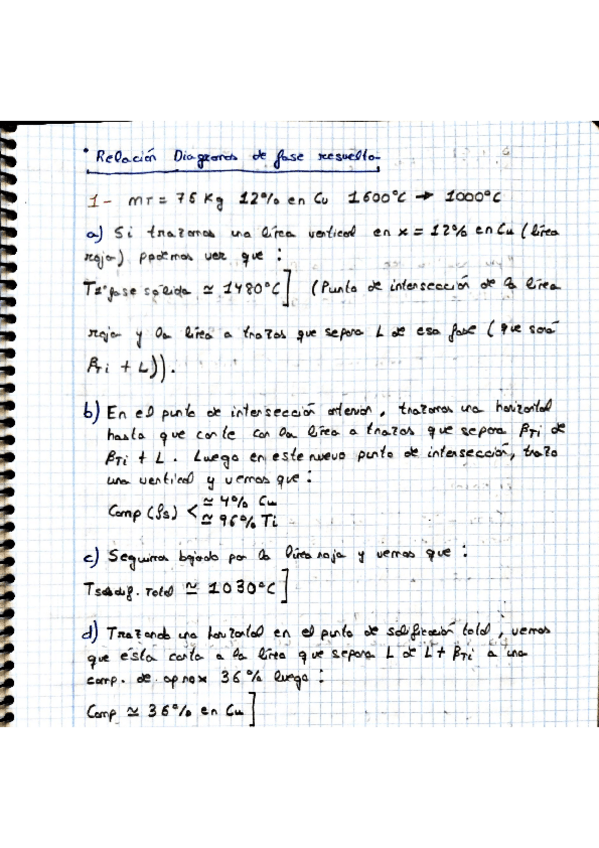 * Relación Diagramas de fase resuelta
1- mT = 75 Kg 12% en Cu 1600ºC → 1000ºC
a) Si trazamos una línea vertical en x = 12% en Cu (línea
roja) podemos ver que :
T 1ª fase solida ≃ 1480ºC] (Punto de intersección de la línea
roja y la línea a trazos que separa L de esa fase (que será
βTi + L)).
b) En el punto de intersección anterior, trazamos una horizontal
hasta que corte con la línea a trazos que separa βTi de
βTi + L. Luego en este nuevo punto de intersección, trazo
una vertical y vemos que :
Comp (fs) < ≃ 4% Cu
≃ 96% Ti
c) Seguimos bajando por la línea roja y vemos que :
Tsolidif. Total ≃ 1030ºC]
d) Trazando una horizontal en el punto de solificación total, vemos
que ésta corta a la línea que separa L de L + βTi a una
comp. de aprox 36% luego :
Comp ≃ 36% en Cu]